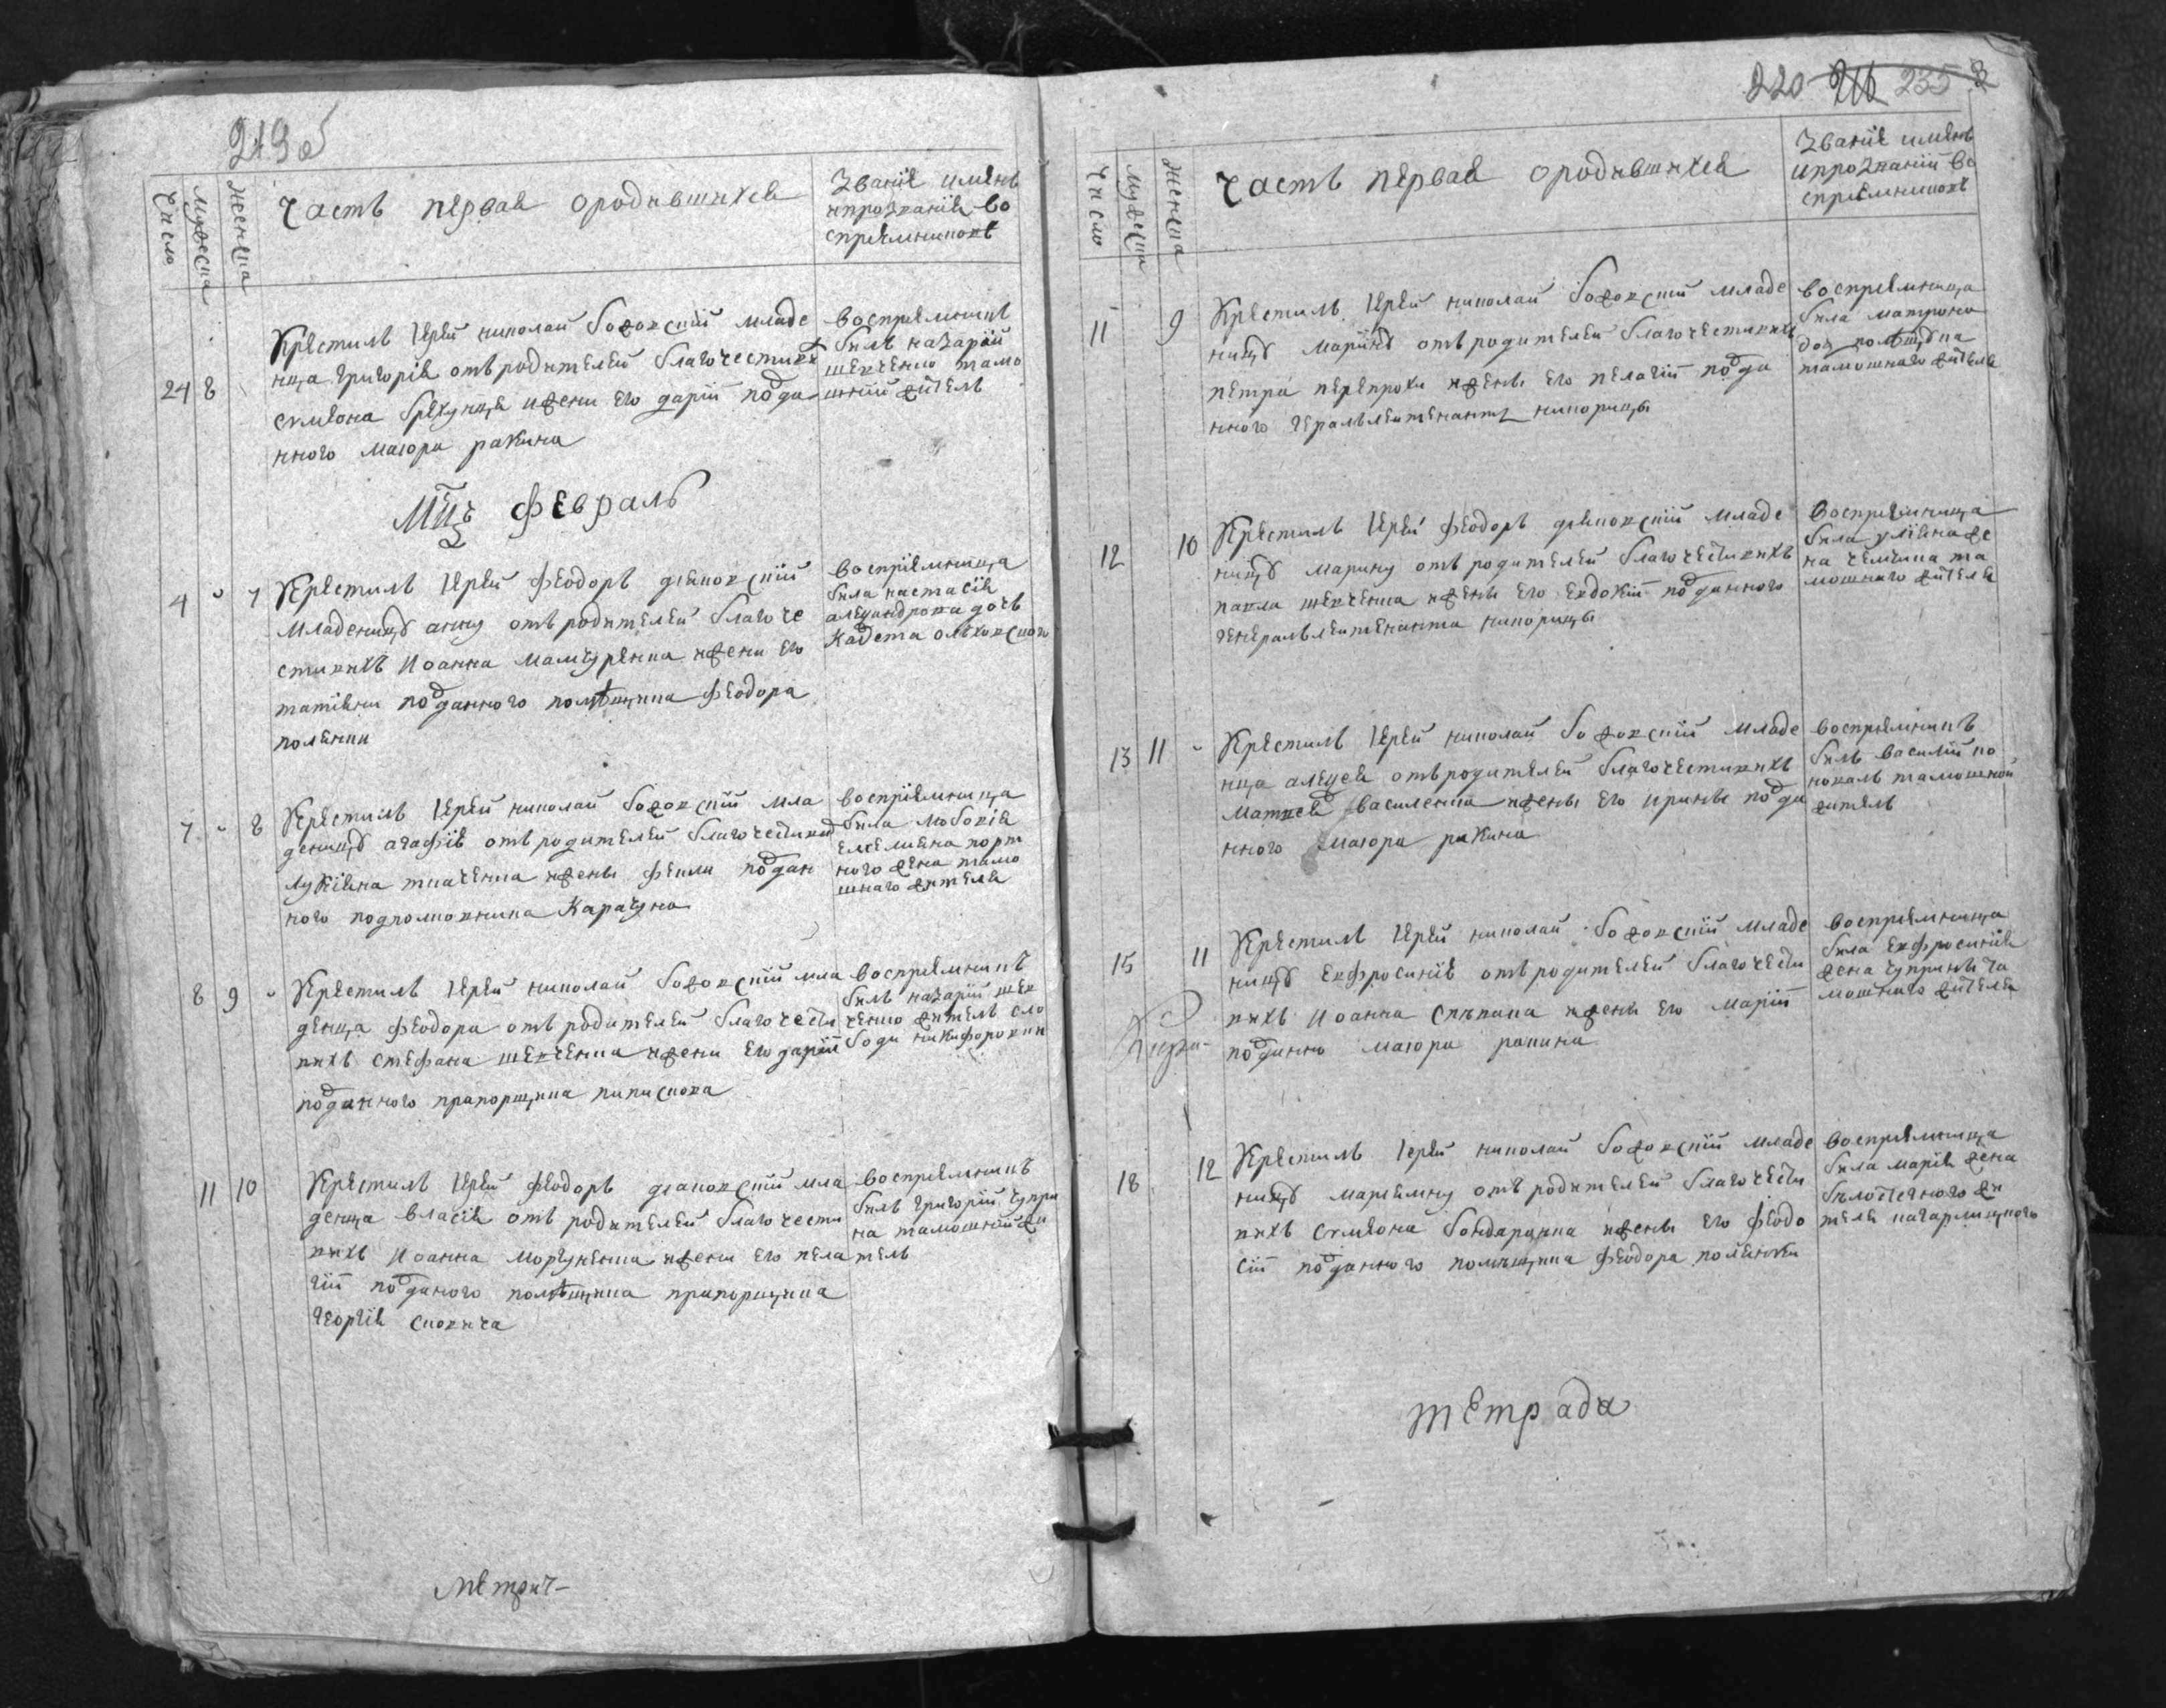 219 об
Число
Мужеска
Женска
Часть первая ородившихся
Званїе имянъ
ипрозванїя во
спрїемниковъ
24 8
Крестилъ Ієрей николай божовскїй младе
нца григорїя отъ родителей благочестивых
симеона брехунця ижени его дарїи подда
нного маиора ракина
воспрїемникъ
билъ назарїй
шевченко тамо
шнїй житель
Мц҃ъ февраль
4 7
Крестилъ Ієрей феодоръ деяновскїй
младеницу анну отъ родителей благоче
стивихъ Иоанна мамчуренка ижени его
татїяни подданного помѣщика феодора
поленки
воспрїемница
била настасїя
александрова дочь
кадета олховского
7 8
Крестилъ Ієрей николай божовскїй мла
деницу агафїю отъ родителей благочестивих
лукїяна ткаченка ижены феклы поддан
ного подполковника Карачуна
воспрїемница
била любовїя
емелияна порт
ного жена тамо
шнаго жителя
8 9
Крестилъ Ієрей николай божовскїй мла
денца феодора отъ родителей благочести
вихъ стефана шевченка ижени его дарїи
подданного прапорщика пипискова
воспрїемникъ
билъ назарїй шев
ченко житель сло
боди никифоровки
11 10
Крестилъ Ієрей феодоръ деановскїй мла
денца власїя отъ родителей благочести
вихъ Иоанна моргуненка ижени его пела
гїи подданого помѣщика прапорщика
георгїя сковича
воспрїемникъ
билъ григорїй чупри
на тамошнїй жи
тель
Метрич-
220 216 235
Число
Мужеска
Женска
Часть первая ородившихся
Званїе имянъ
ипрозванїи во
спрїемниковъ
11 9
Крестилъ Ієрей николай божовскїй младе
ницу марїну отъ родителей благочестивихъ
петра перепроки ижены его пелагїи подда
нного геральлейтенанта никорицы
воспрїемница
била матрона
тамошнаго жителя
12 10
Крестилъ Ієрей феодоръ деяновскїй младе
ницу марину отъ родителей благочестивихъ
павла шевченка ижены его евдокїи подданного
генеральлейтенанта никорицы
воспрїемница
била улїяна же
на чемина та
мошнаго жителя
13 11
Крестилъ Ієрей николай божовскїй младе
нца алецея отъродителей благочестивихъ
матвея василенка ижены его ирины подда
нного маюра ракина
воспрїемникъ
билъ василїй ко
новаль тамошной
житель
15 11
Крестилъ Ієрей николай божовскїй младе
ницу евфросинїю отъ родителей благочести
вихъ Иоанна спѣвака ижены его марїи
подданно маюра ракина
воспрїемница
била евфросинїя
жена чуприны та
мошнаго жителя
18 12
Крестилъ Ієрей николай божовскїй младе
ницу маремяну отъ родителей благочести
вихъ симеона бондаренка ижены его феодо
сїи подданного помѣщика феодора поленки
воспрїемница
била марїя жена
жи
теля кагарлицкого
тетрада